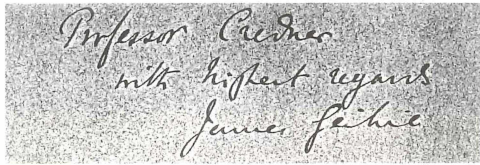 Professor Credner
with highest regards
James Geikie